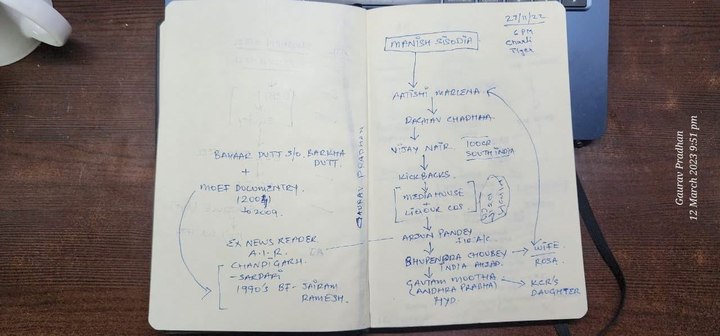 BAHAAR DUTT S/O. BARKHA
DUTT.
+
MOEF DOCUMENTRY.
(2004
to 2009.
EX NEWS READER
A.I.R.
CHANDIGARH.
- SARDARI
1990's BF - JAIRAM
RAMESH.
GAURAV PRADHAN
27/11/22
6 PM
Charli
Tiger
MANISH SISODIA
AATISHI MARLENA
RAGHAV CHADHHA.
VIJAY NAIR. 100CR
SOUTH INDIA
KICKBACKS.
MEDIA HOUSE
LIQUOR COS
ARJUN PANDEY
A/C.
BHUPENDRA CHOUBEY
INDIA AHEAD.
WIFE.
ROSA.
GAUTAM MOOTHA
(ANDHRA PRABHA)
HYD.
KCR'S
DAUGHTER
Gaurav Pradhan
12 March 2023 9:51 pm